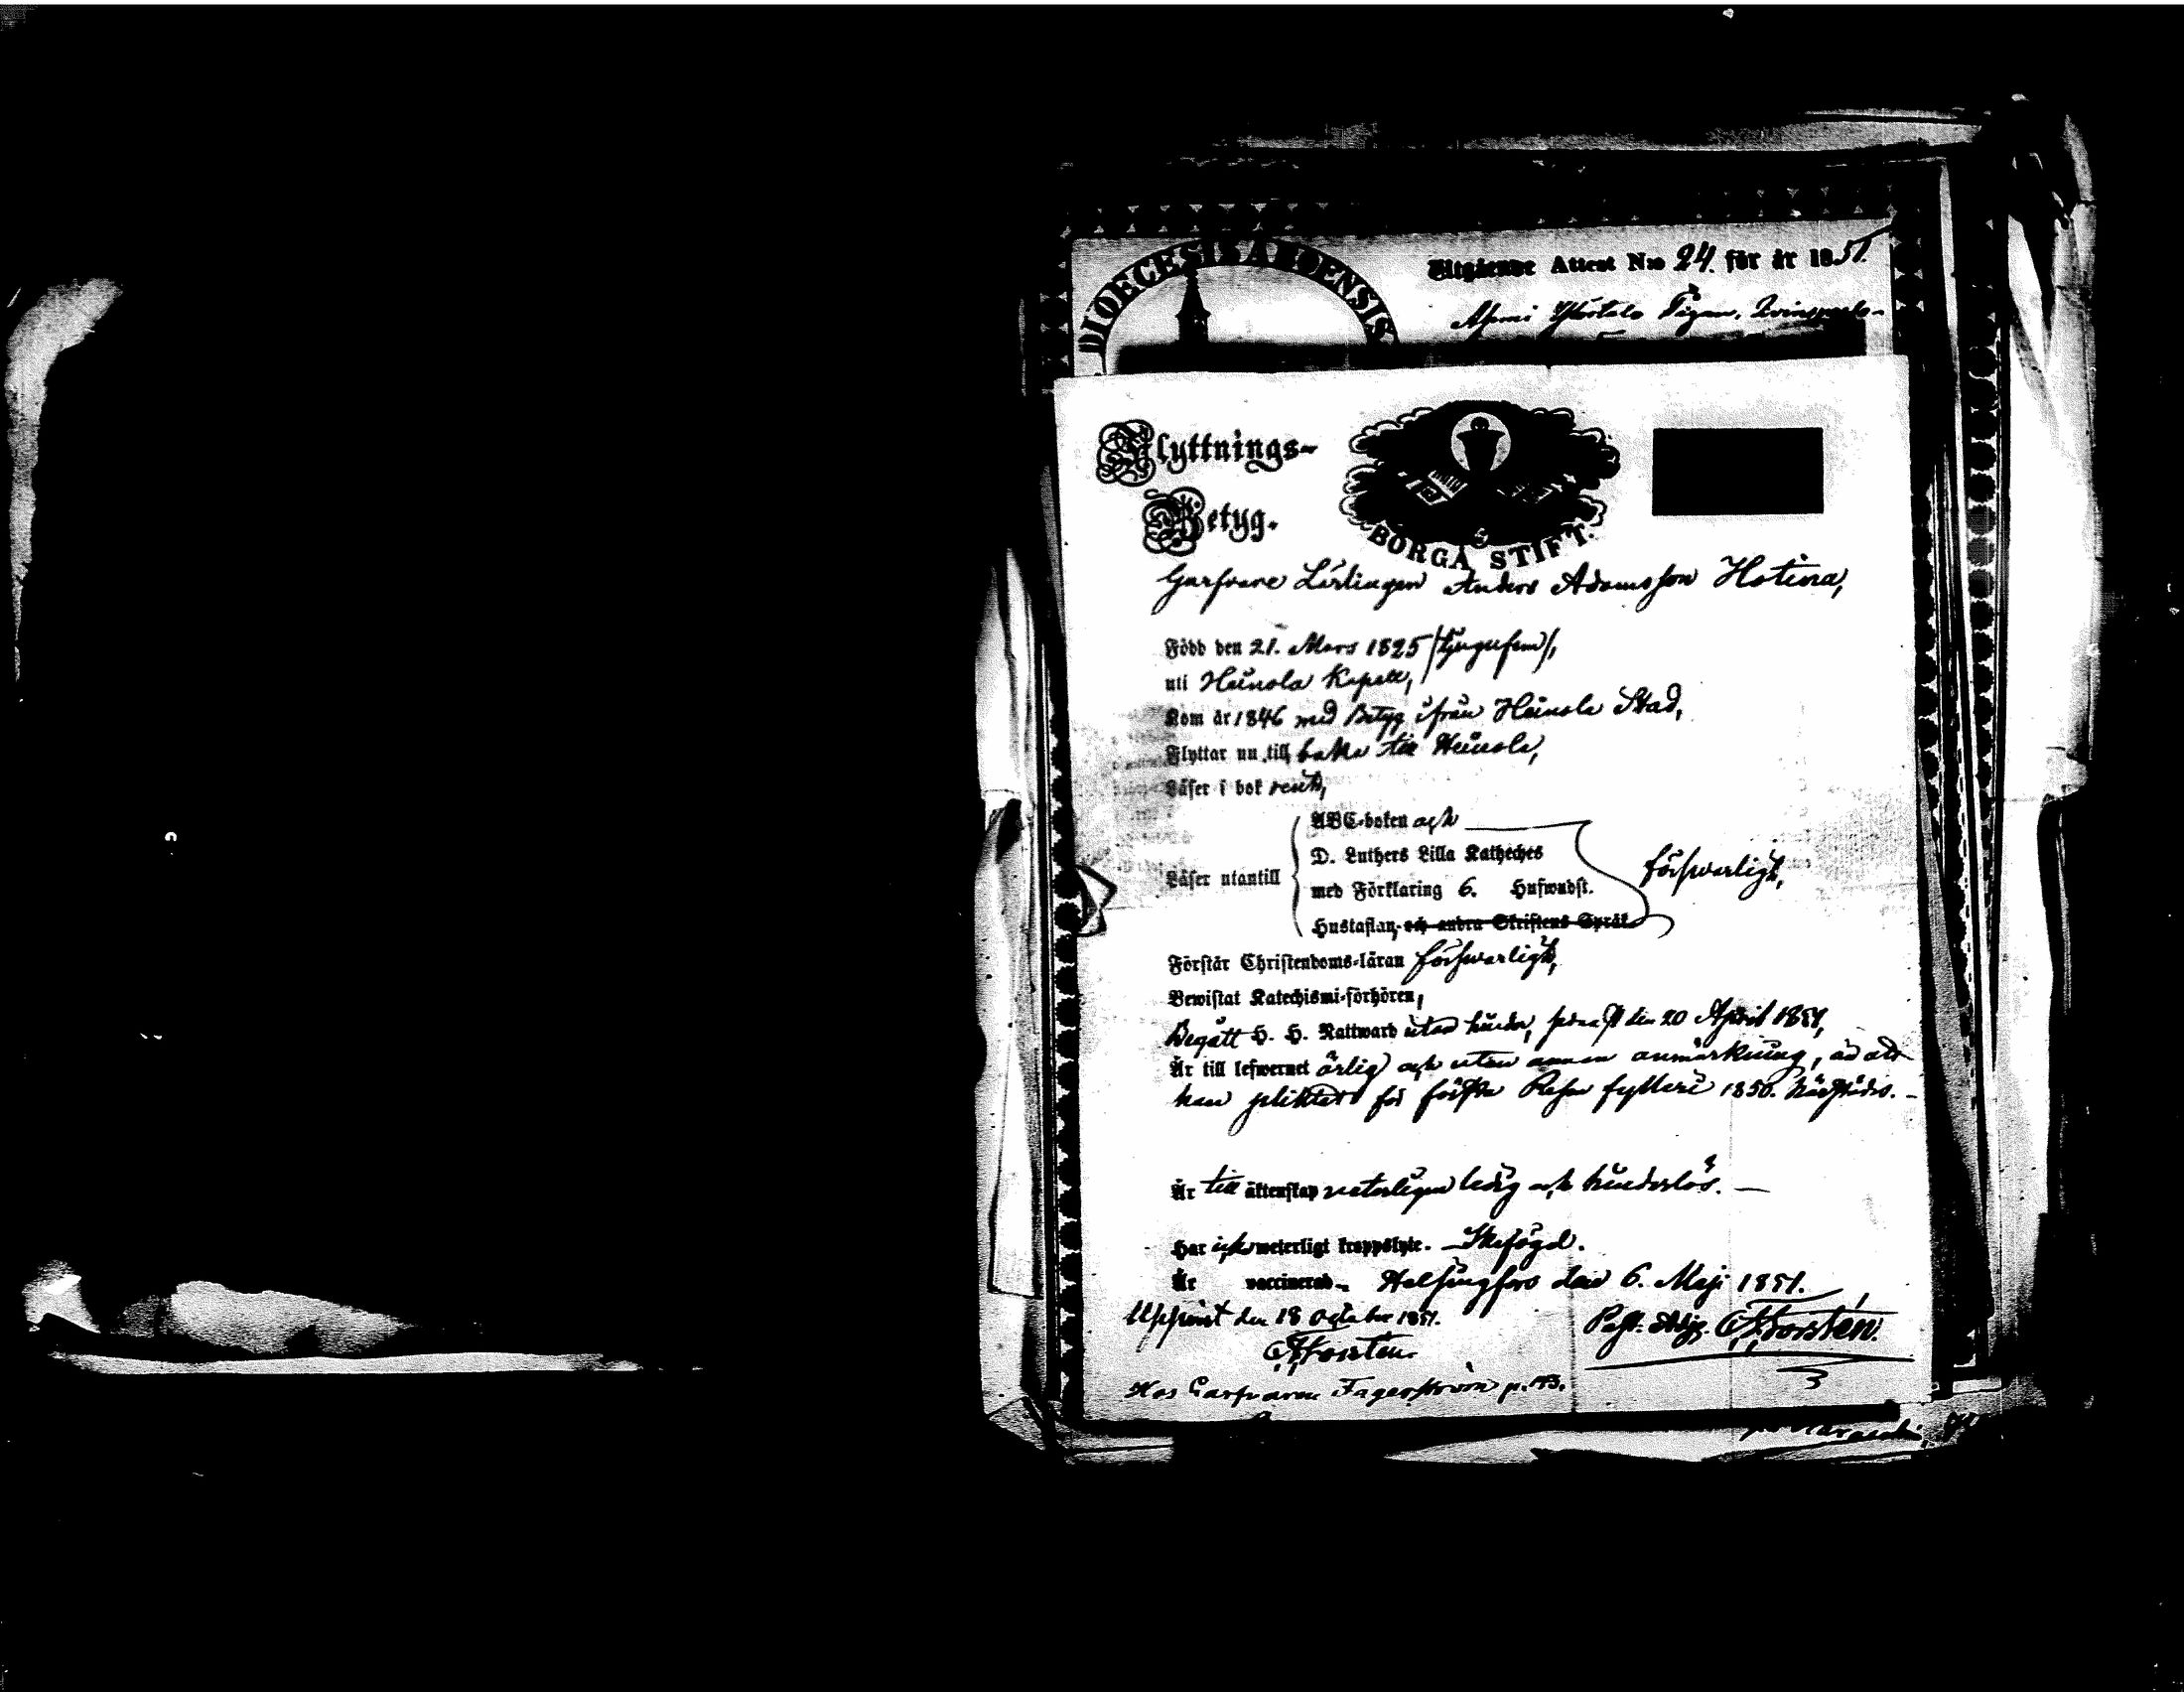 DIOECESIS ABOENSIS
Utgående Attest N:o 24. för år 1851.
Flyttnings-
Betyg.
BORGÅ STIFT.
Garfvare Lärlingen Anders Adamsson Hotina,
Född den 21. Mars 1825 /tjugufem/,
uti Heinola Kapell,
Kom år 1846 med Betyg ifrån Heinola Stad,
Flyttar nu till baka till Heinola,
Läser i bok rent,
ABC-boken och
D. Luthers Lilla Katheches
Läser utantill
med Förklaring 6. Hufwudst.
försvarligt,
Hustaflan, och andra Skriftens Språk
Förstår Christendoms-läran försvarligt,
Bewistat Katechismi-förhören,
Begått H. H. Nattward utan hinder, senast den 20 April 1851,
Är till lefwernet ärlig och utan annan anmärkning, än att
han pliktat för första Resan fylleri 1850. härstädes. -
Är till äktenskap veterligen ledig och hinderlös. -
Har icke weterligt kroppslyte. - Skefögd.
Är vaccinerad. Helsingfors den 6. Maji 1851.
Uppvist den 18 October 1851.
Past. Adj. Forstén.
Forstén.
Hos Garfvaren Fagerström p. 173.